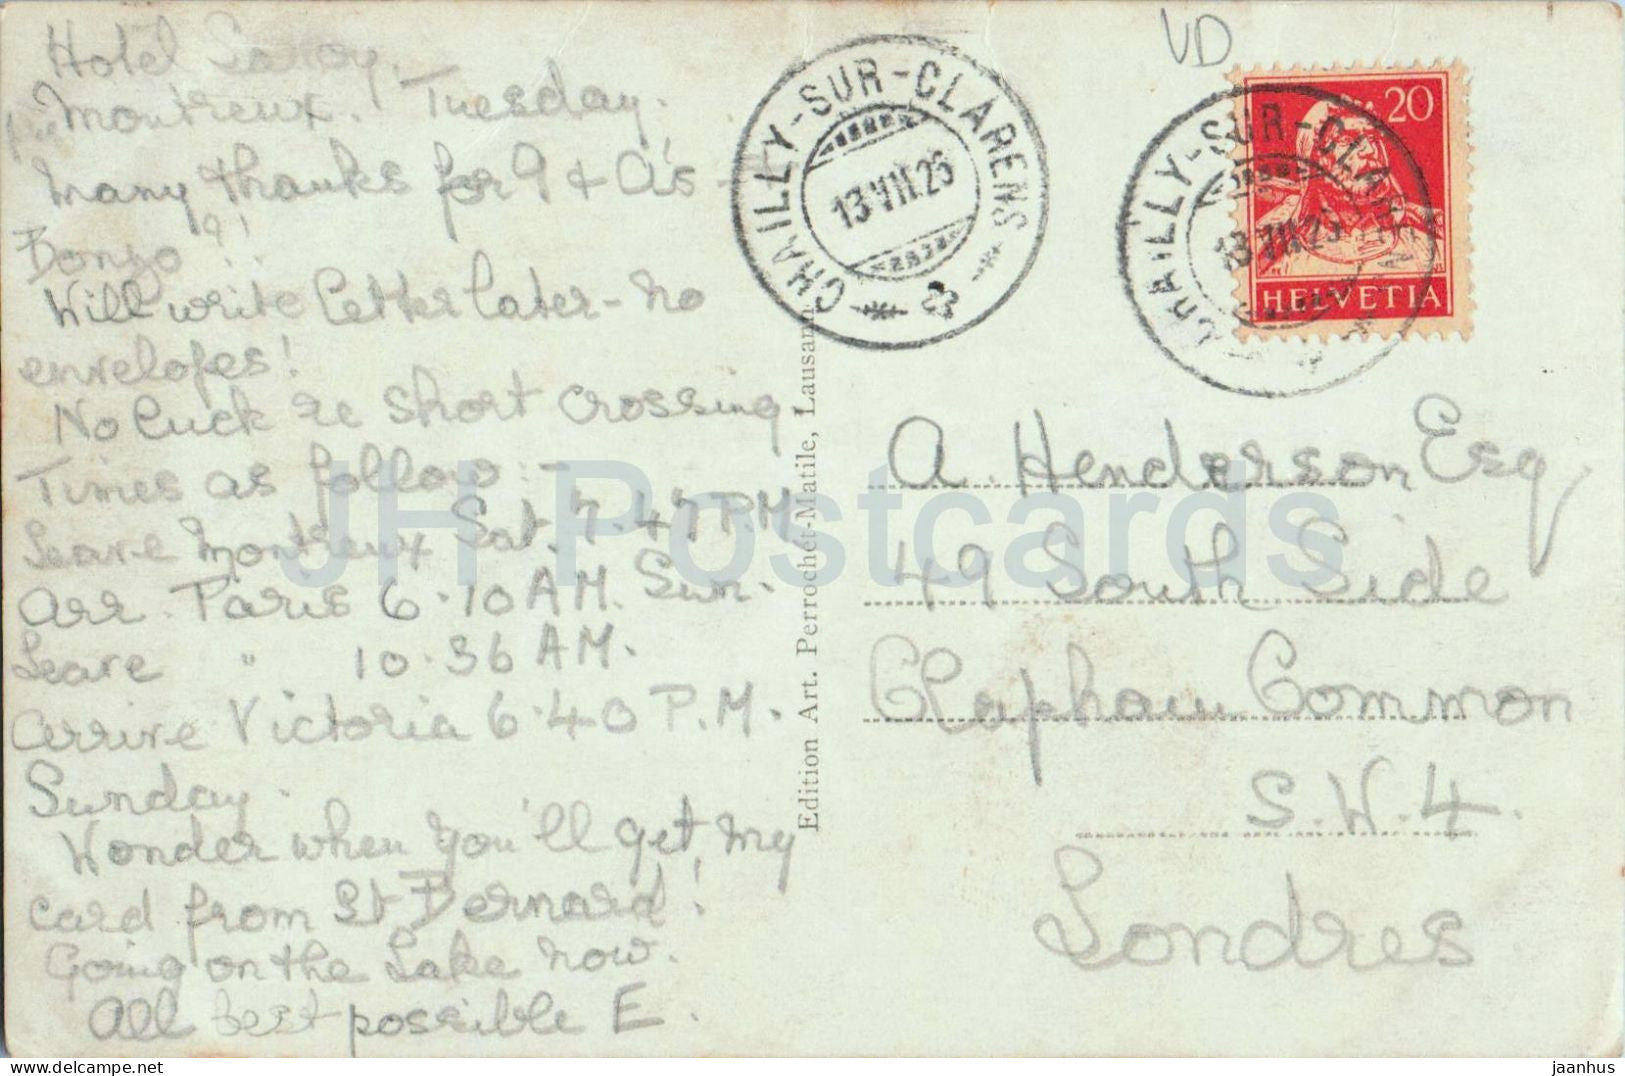 Hotel Savoy.
Montreux. Tuesday.
Many thanks for 9 & A's -
Bongo ?!!
Will write letter later - no
envelopes!
No luck re short crossing
Times as follow -
Leave Montreux Sat. 7.47 P.M
Arr. Paris 6.10 A.M. Sun.
Leave " 10.36 A.M.
arrive Victoria 6.40 P.M.
Sunday.
Wonder when you'll get my
card from St Bernard!
Going on the Lake now.
All best possible E.
Edition Art. Perrochet-Matile, Lausanne
CHAILLY-SUR-CLARENS
13.VII.26
VD
20
HELVETIA
CHAILLY-SUR-CLARENS
13.VII.26
A. Henderson Esq
49 South Side
Clapham Common
S.W.4.
Londres
JH Postcards
jaanhus